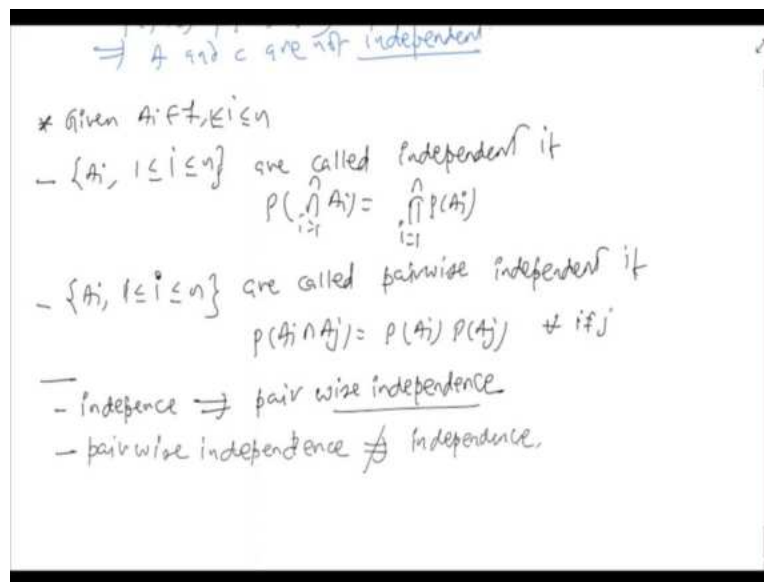 ⇒ A and C are not independent
* Given Ai ∈ F, 1≤i≤n
- {Ai, 1 ≤ i ≤ n} are called independent if
P(⋂_{i=1}^{n} Ai) = ∏_{i=1}^{n} P(Ai)
- {Ai, 1≤ i ≤ n} are called pairwise independent if
P(Ai ∩ Aj) = P(Ai) P(Aj) ∀ i≠j
- indepence ⇒ pair wise independence
- pairwise independence ⇏ independence.